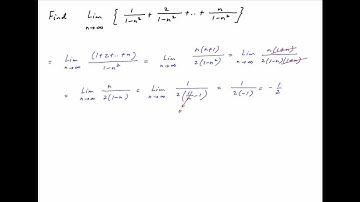 Find Lim n→∞ { 1/(1-n²) + 2/(1-n²) + ... + n/(1-n²) }
= Lim n→∞ (1+2+...+n)/(1-n²) = Lim n→∞ n(n+1)/(2(1-n²)) = Lim n→∞ n(1+n)/(2(1-n)(1+n))
= Lim n→∞ n/(2(1-n)) = Lim n→∞ 1/(2(1/n-1)) = 1/(2(-1)) = -1/2